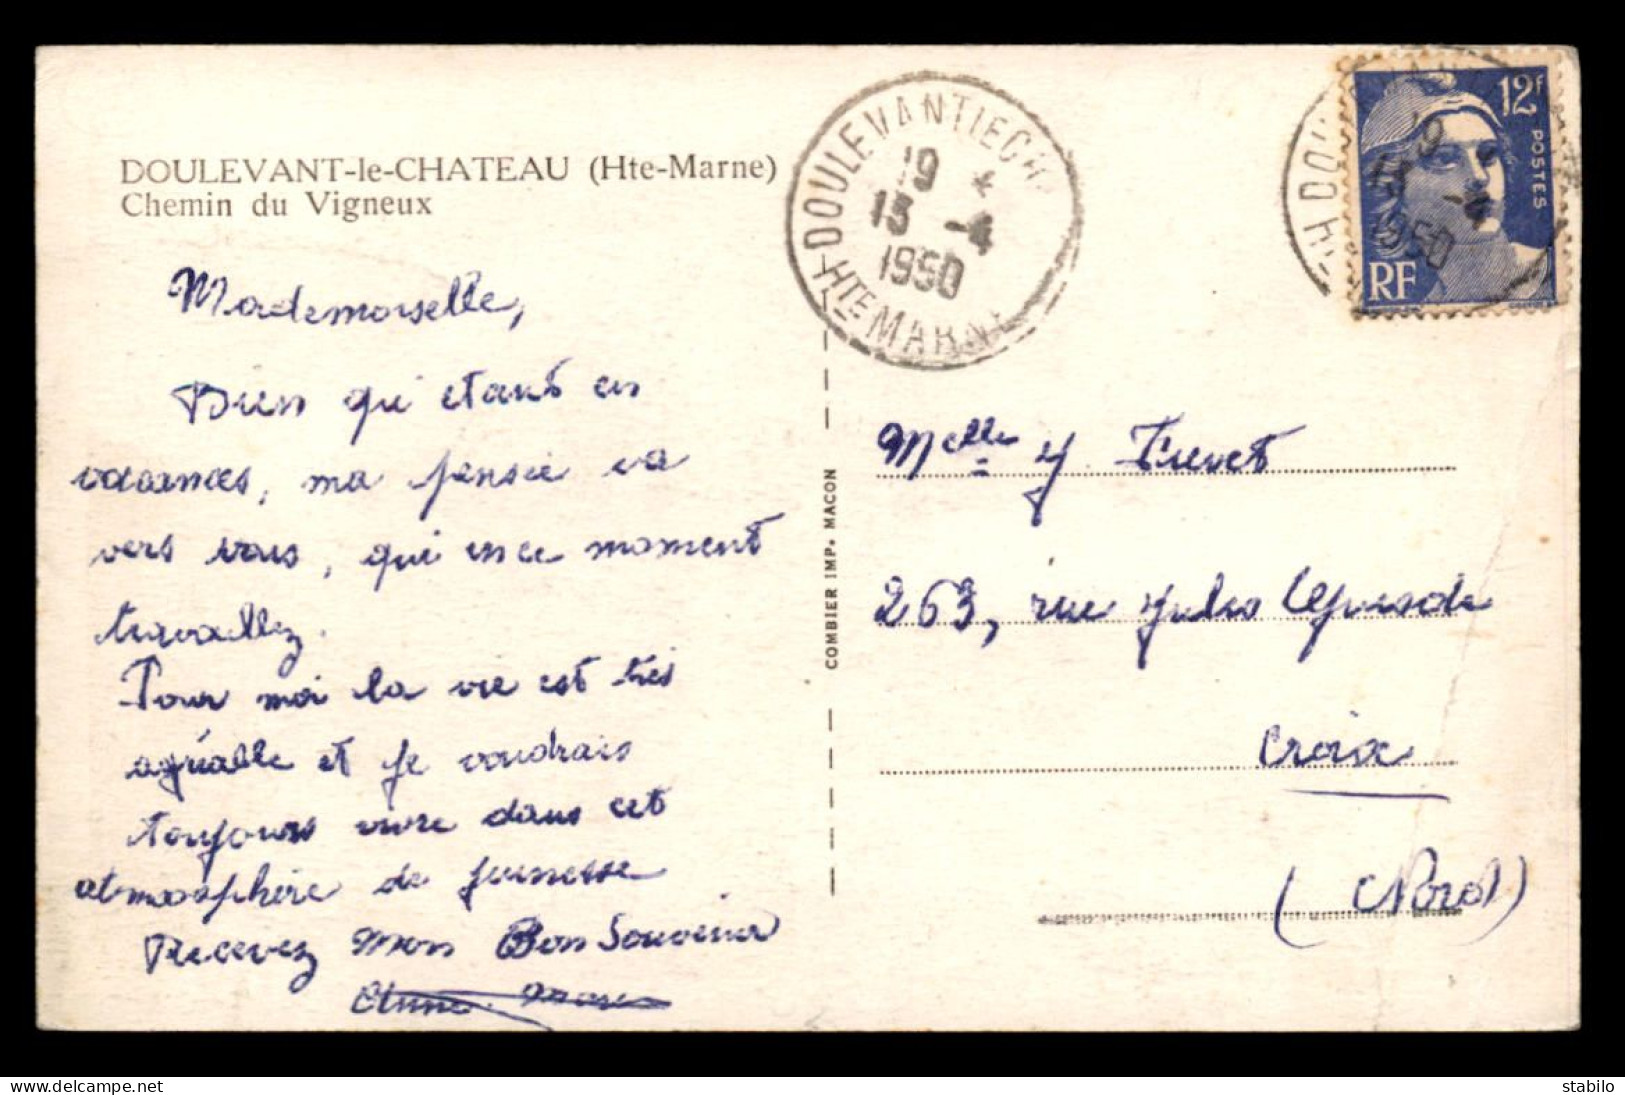 DOULEVANT-le-CHATEAU (Hte-Marne)
Chemin du Vigneux
Mademoiselle,
Bien qui étant en
vacances, ma pensée va
vers vous, qui en ce moment
travaillez.
Pour moi la vie est très
agréable et je voudrais
toujours vivre dans cet
atmosphère de jeunesse
Recevez Mon Bon Souvenir
Anne Marie
COMBIER IMP. MACON
DOULEVANT LE CH
19 *
13 -4
1950
HTE MARNE
12F
POSTES
RF
GANDON
19
13 -4
1950
Melle Y
263, rue Jules
Croix
(Nord)
delcampe.net
stabilo